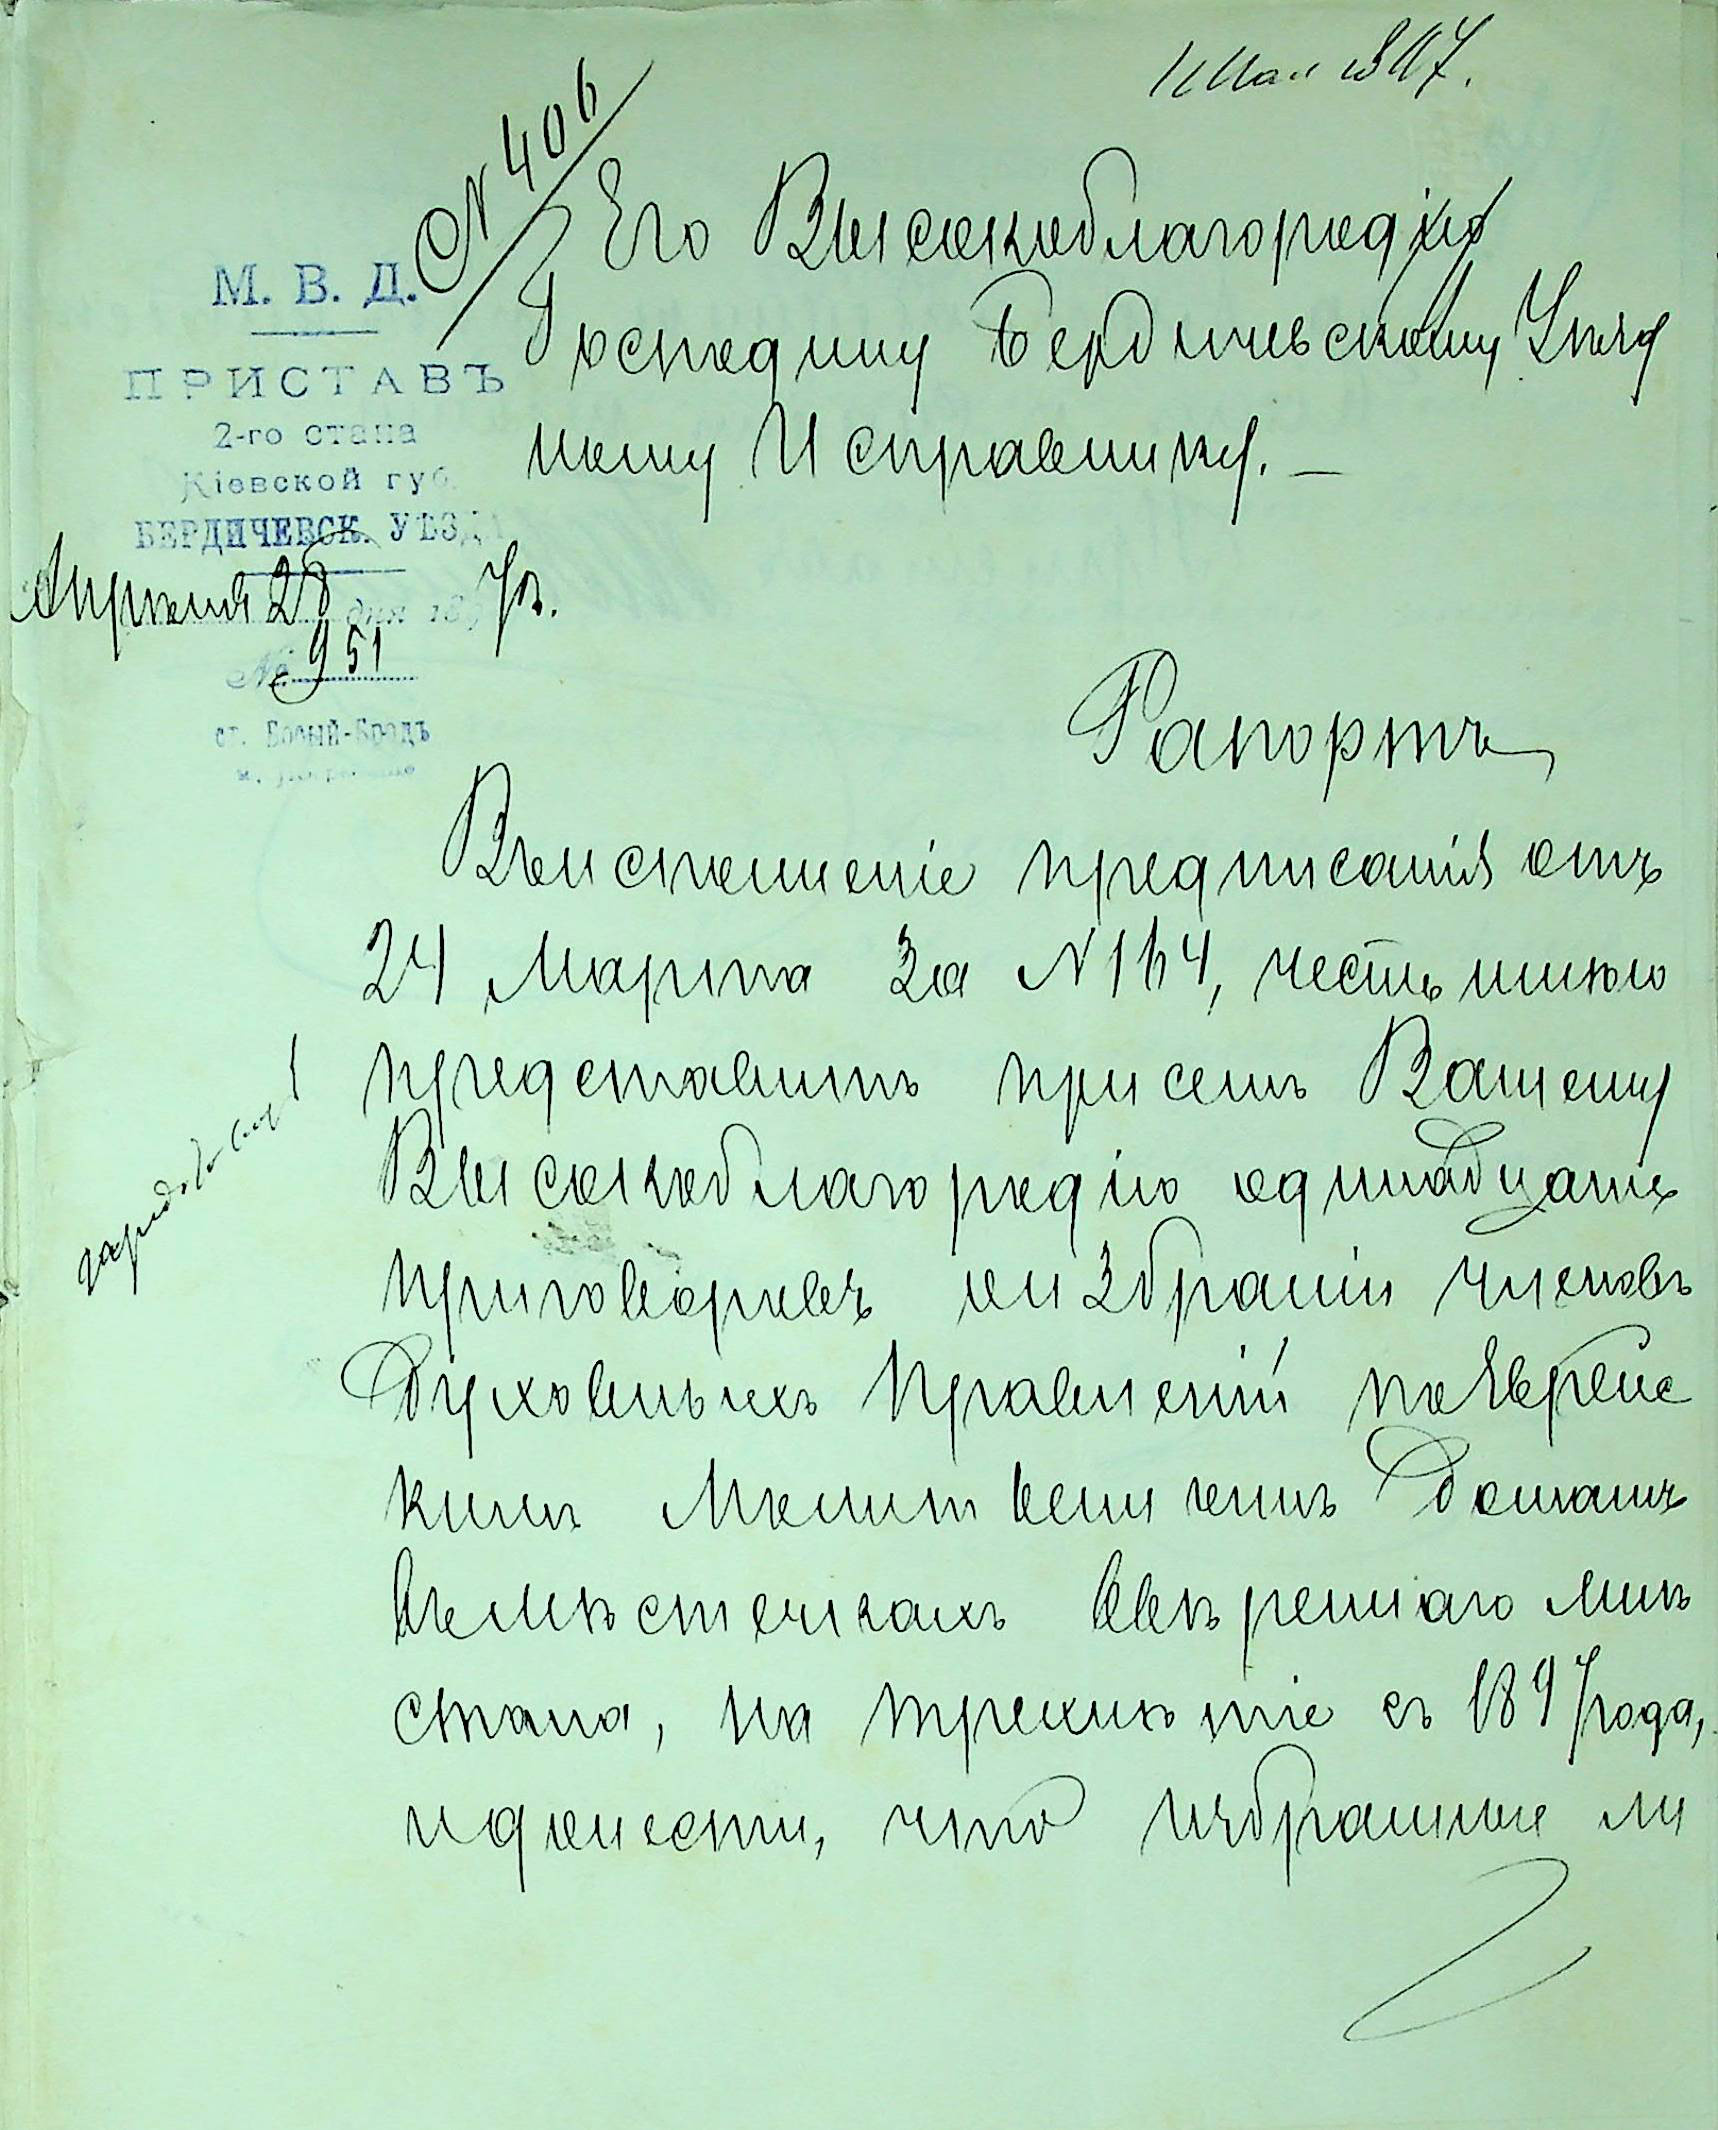 Мая 1897.
№ 406
Его Высокоблагородію
Господину Бердичевскому Уѣзд
ному Исправнику. —
М. В. Д.
ПРИСТАВЪ
2-го стана
Кіевской губ.
БЕРДИЧЕВСК. УѢЗДА
Апрѣля 28 дня 1897 г.
№ 951
ст. Босый-Бродъ
Рапортъ
Въисполненіе предписанія отъ
24 Марта за N 164, честь имѣю
представить при семъ Вашему
Высокоблагородію одинадцать
приговоровъ обизбраніи членовъ
Духовныхъ Правленій поЕврейс
кимъ Молитвеннымъ Домамъ
въмѣстечкахъ ввѣреннаго мнѣ
стана, на трехлѣтіе съ 1897 года,
идонести, что избранные ли